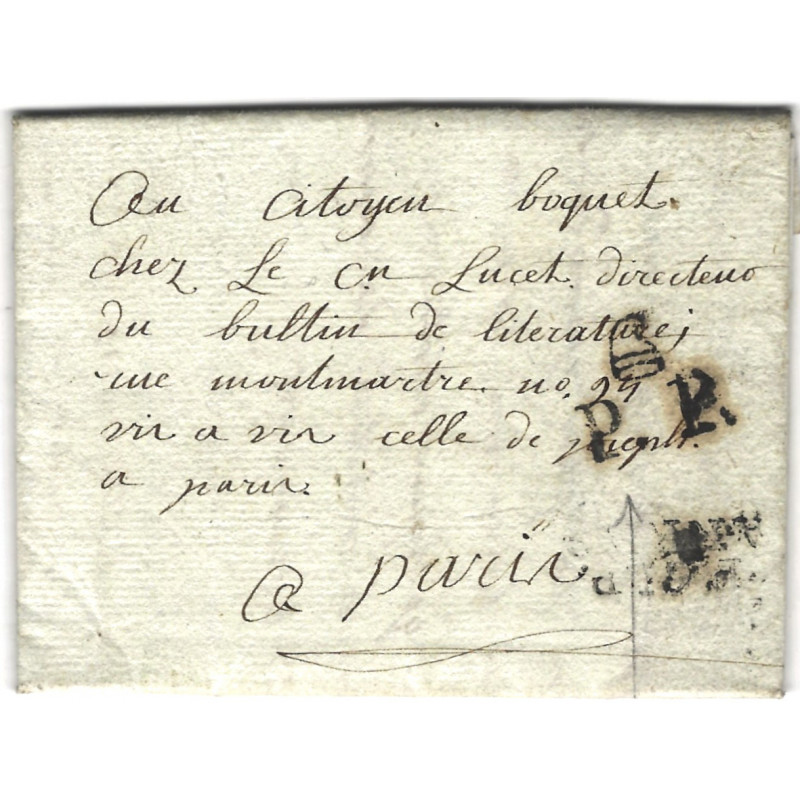 Au Citoyen boquet.
chez Le Cn Lucet. directeur
du bultin de literature;
rue montmartre. no. 24
vis a vis celle de joseph.
a paris.
P. P.
a paris